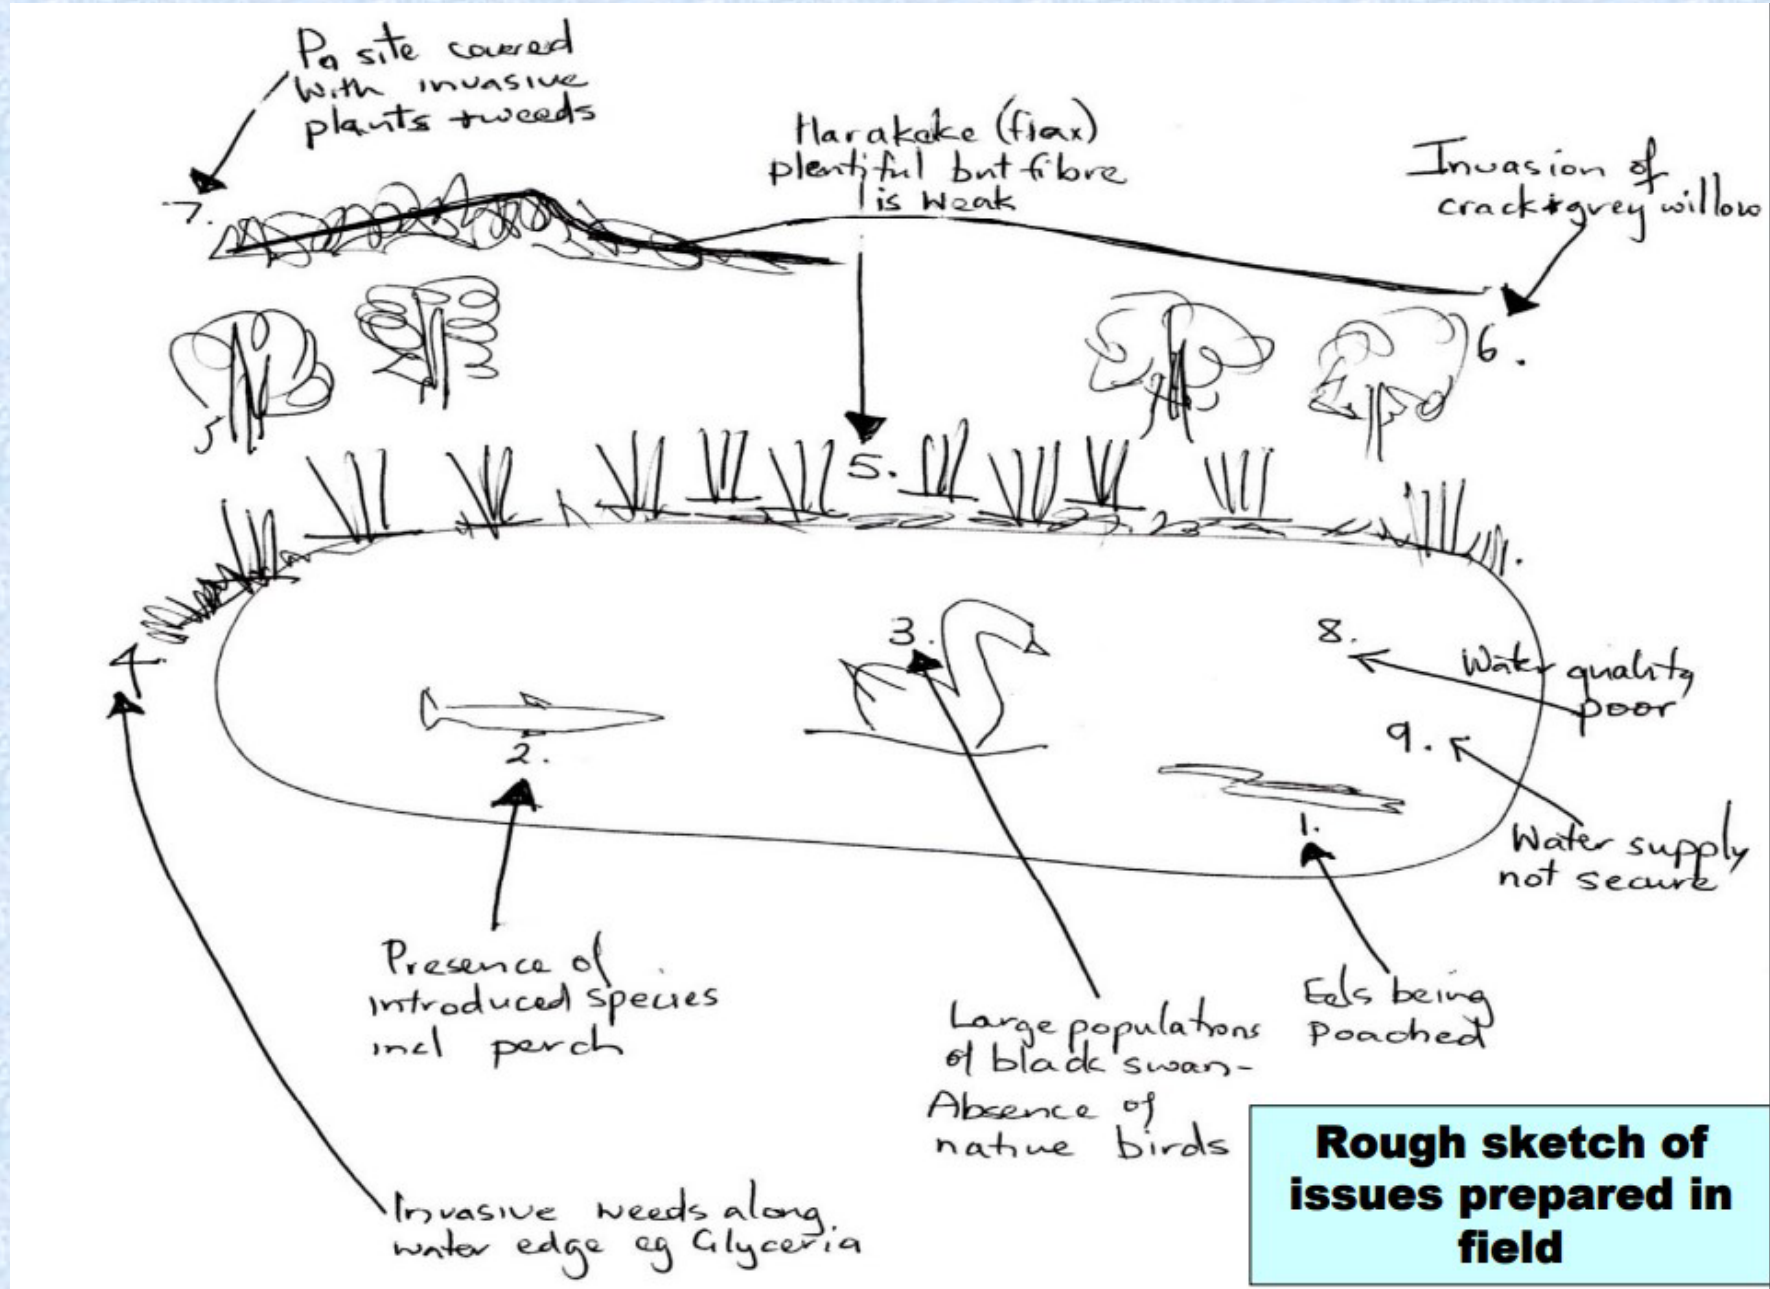 Pa site covered
with invasive
plants + weeds
Harakeke (flax)
plentiful but fibre
is weak
Invasion of
crack + grey willow
7.
6.
5.
4.
3.
8.
Water quality
poor
2.
9.
1.
Water supply
not secure
Presence of
introduced species
incl perch
Large populations
of black swan-
Absence of
native birds
Eels being
poached
Invasive weeds along
water edge eg Glyceria
Rough sketch of
issues prepared in
field